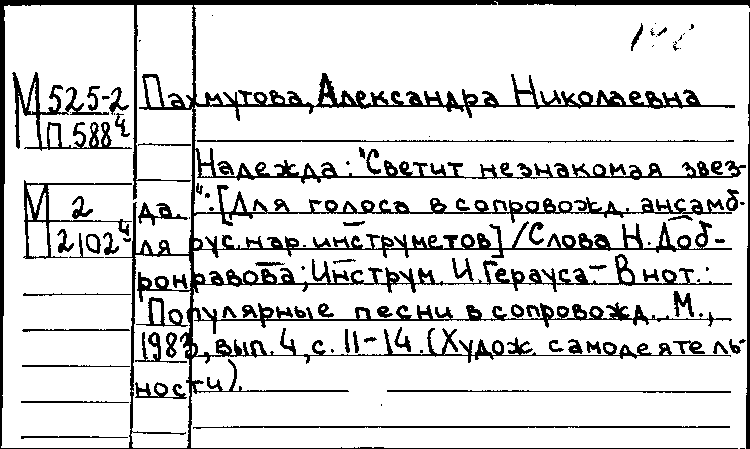 М 525-2 Пахмутова, Александра Николаевна
П.588 4
Надежда: "Светит незнакомая звез-
М 2 да.": [Для голоса в сопровожд. ансамб-
2102 4 ля рус. нар. инструметов] / Слова Н. Доб-
ронравова; Инструм. И. Герауса.- В нот.:
Популярные песни в сопровожд. М.,
1983, вып. 4, с. 11-14. (Худож. самодеятель-
ности).